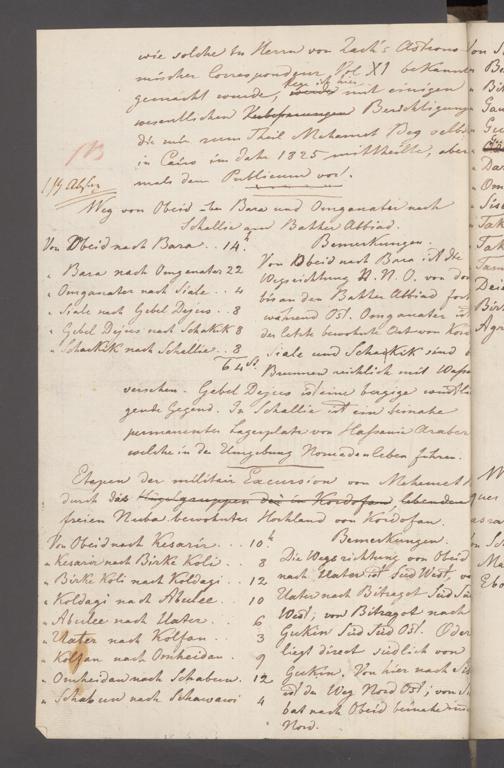 wie solche in Herrn von Zach's Astrono-
mischer Correspondenz Vol XI bekannt
gemacht wurde, lege ich hier mit einigen
wesentlichen Verbesserungen Berichtigung
die mir zum Theil Mehemet Beg selbst
in Cairo im Jahr 1825 mittheilte, aber
mals dem Publicum vor.
Weg von Obeid über Bara und Omganater nach
Schallie am Bather Abbiad.
Von Obeid nach Bara .. 14 h
" Bara nach Omganater 22
" Omganater nach Siale .. 4
" Siale nach Gebel Dejus .. 8
" Gebel Dejus nach Schakik 8
" Schakkik nach Schellie .. 8
64 St.
Bemerkungen.
Von Obeid nach Bara ist die
Wegsrichtung N. N. O. von dort
bis an den Bather Abbiad fort
während Ost. Omganater ist
der letzte bewohnte Ort von Kord
Siale und Schakkik sind
Brunnen reichlich mit Wasser
versehen. Gebel Dejus ist eine bergige
gende Gegend. In Schallie ist ein beinahe
permanenter Lagerplatz von Hassanie Araber
welche in der Umgebung Nomadenleben führen.
Etapen der militair Excursion von Mehemet
durch das Hügelgruppen die in Kordofan lebenden
freien Nuba bewohnter Hochland von Kordofan.
Von Obeid nach Kesarir .. 10 h
" Kesarir nach Birke Koli .. 8
" Birke Koli nach Koldagi .. 12
" Koldagi nach Abulee .. 10
" Abulee nach Uater .. 6
" Uater nach Kolfan .. 3
" Kolfan nach Omheidan .. 9
" Omheidan nach Schabun. 12
" Schabun nach Schawari 4
Bemerkungen.
Die Wegsrichtung von Obeid
nach Uater ist Süd West, von
Uater nach Bitragot Süd Süd
West; von Bitragot nach
Gukin Süd Süd Ost. Oder
liegt direct südlich von
Gukin. Von hier nach
ist der Weg Nord Ost; von
bat nach Obeid beinahe
Nord.